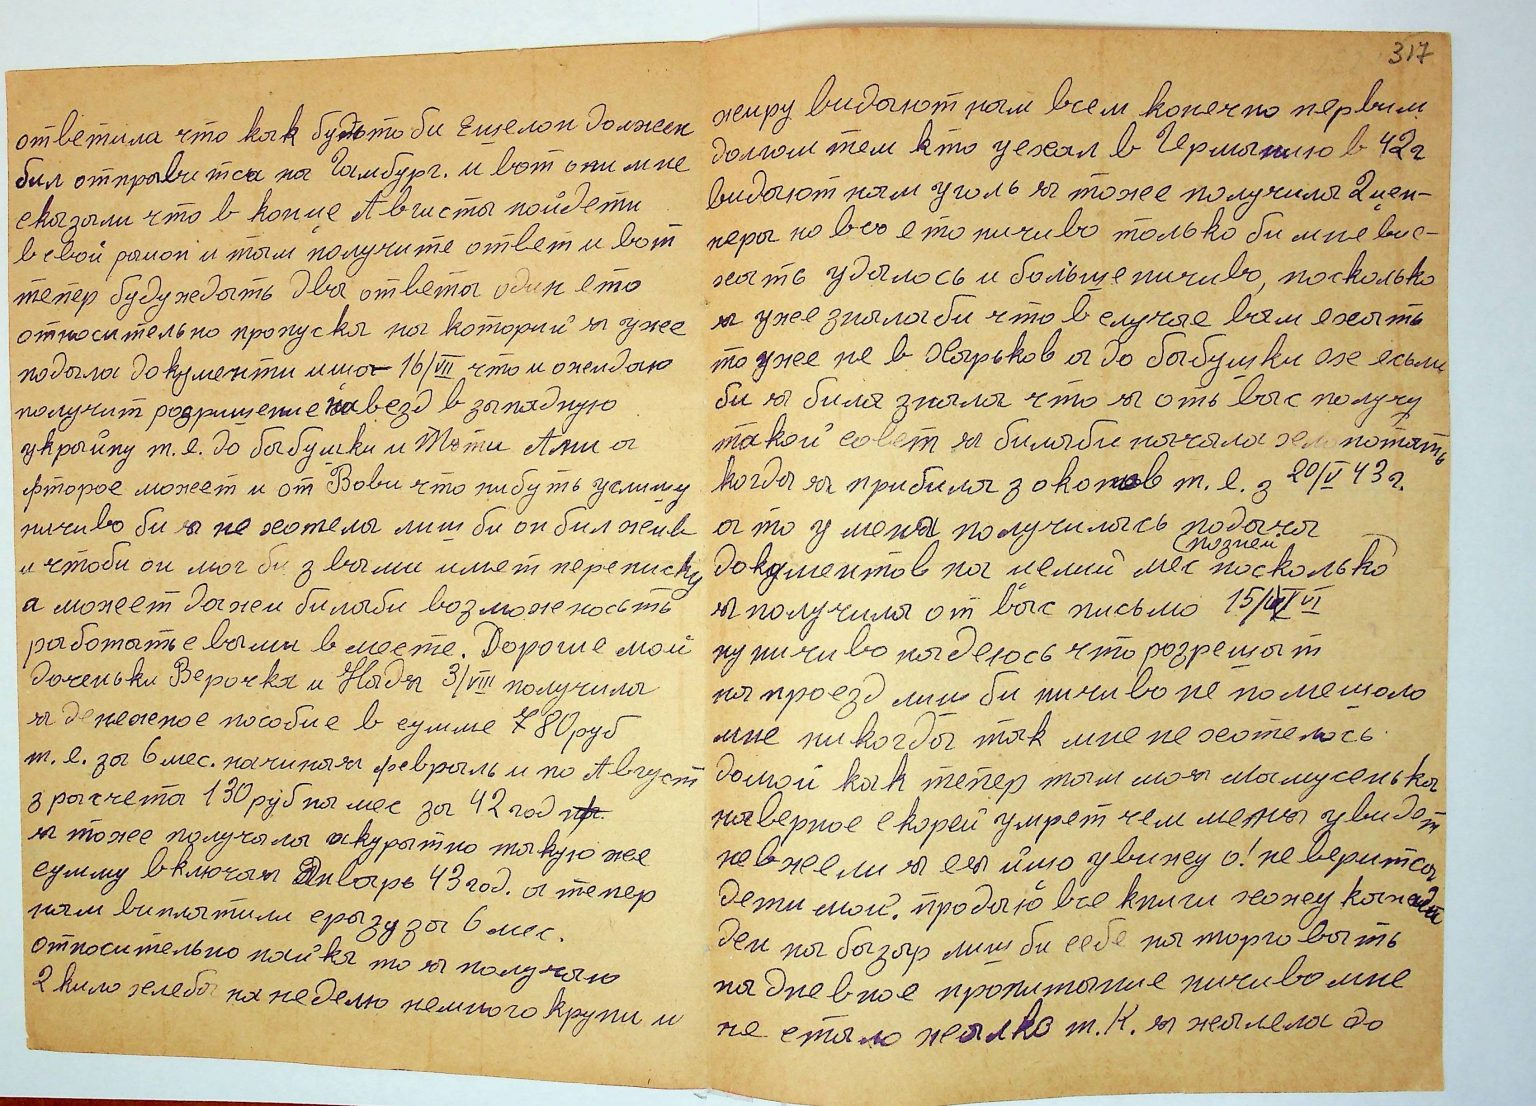 ответила что как будьто би Ешелон должен
бил отправитса на Гамбург. и вот они мне
сказали что в конце Августа пойдети
в свой раион и там получите ответ и вот
тепер буду ждать два ответа один ето
относительно пропуска на которий я уже
подала документи 16/VII что и ожидаю
получит розришение на везд в западную
украйну т.е. до бабушки и Тьоти Ани а
фторое может и от Вови что нибуть услишу
ничиво би я не хотела лиш би он бил жив
и чтоби он мог би з вами имет переписку
а может дажеи билаби возможность
работать с вами в месте. Дорогие мои
доченьки Верочка и Надя 3/VIII получила
я денежное пособие в сумме 780 руб
т.е. за 6 мес. начиная февраль и по Август
з расчета 130 руб на мес за 42 год
я тоже получала акуратно такую же
сумму включая Январь 43 год. а тепер
нам виплатили сразу за 6 мес.
относительно пайка то я получаю
2 кило хлеба на неделю немного крупи и
317
жиру видают нам всем конечно первим
долгом тем кто уехал в Германию в 42 г
видают нам уголь я тоже получила 2 цен-
нера но все ето ничиво только би мне вие-
хать удалось и больше ничиво, посколько
я уже зналаби что в случае вам ехать
то уже не в Харьков а до бабушки ох есьли
би я била знала что я оть вас получу
такой совет я билаби начала хелопотать
когда я прибила з окопов т.е. з 20/V 43 г.
а то у меня получилась подача
документов на целий мес позней посколько
я получила от вас письмо 15/VI
ну ничиво надеюсь что розрешат
на проезд лиш би ничиво не помешало
мне никогда так мне не хотелось
домой как тепер там моя мамусенька
наверное скорей умрет чем меня увидет
невжели я ея йшо увижу о! не веритса
дети мои. продаю все книги хожу кажди
ден на базар лиш би себе на торговать
на дневное пропитание ничиво мне
не стало жалко т.К. я жалела до